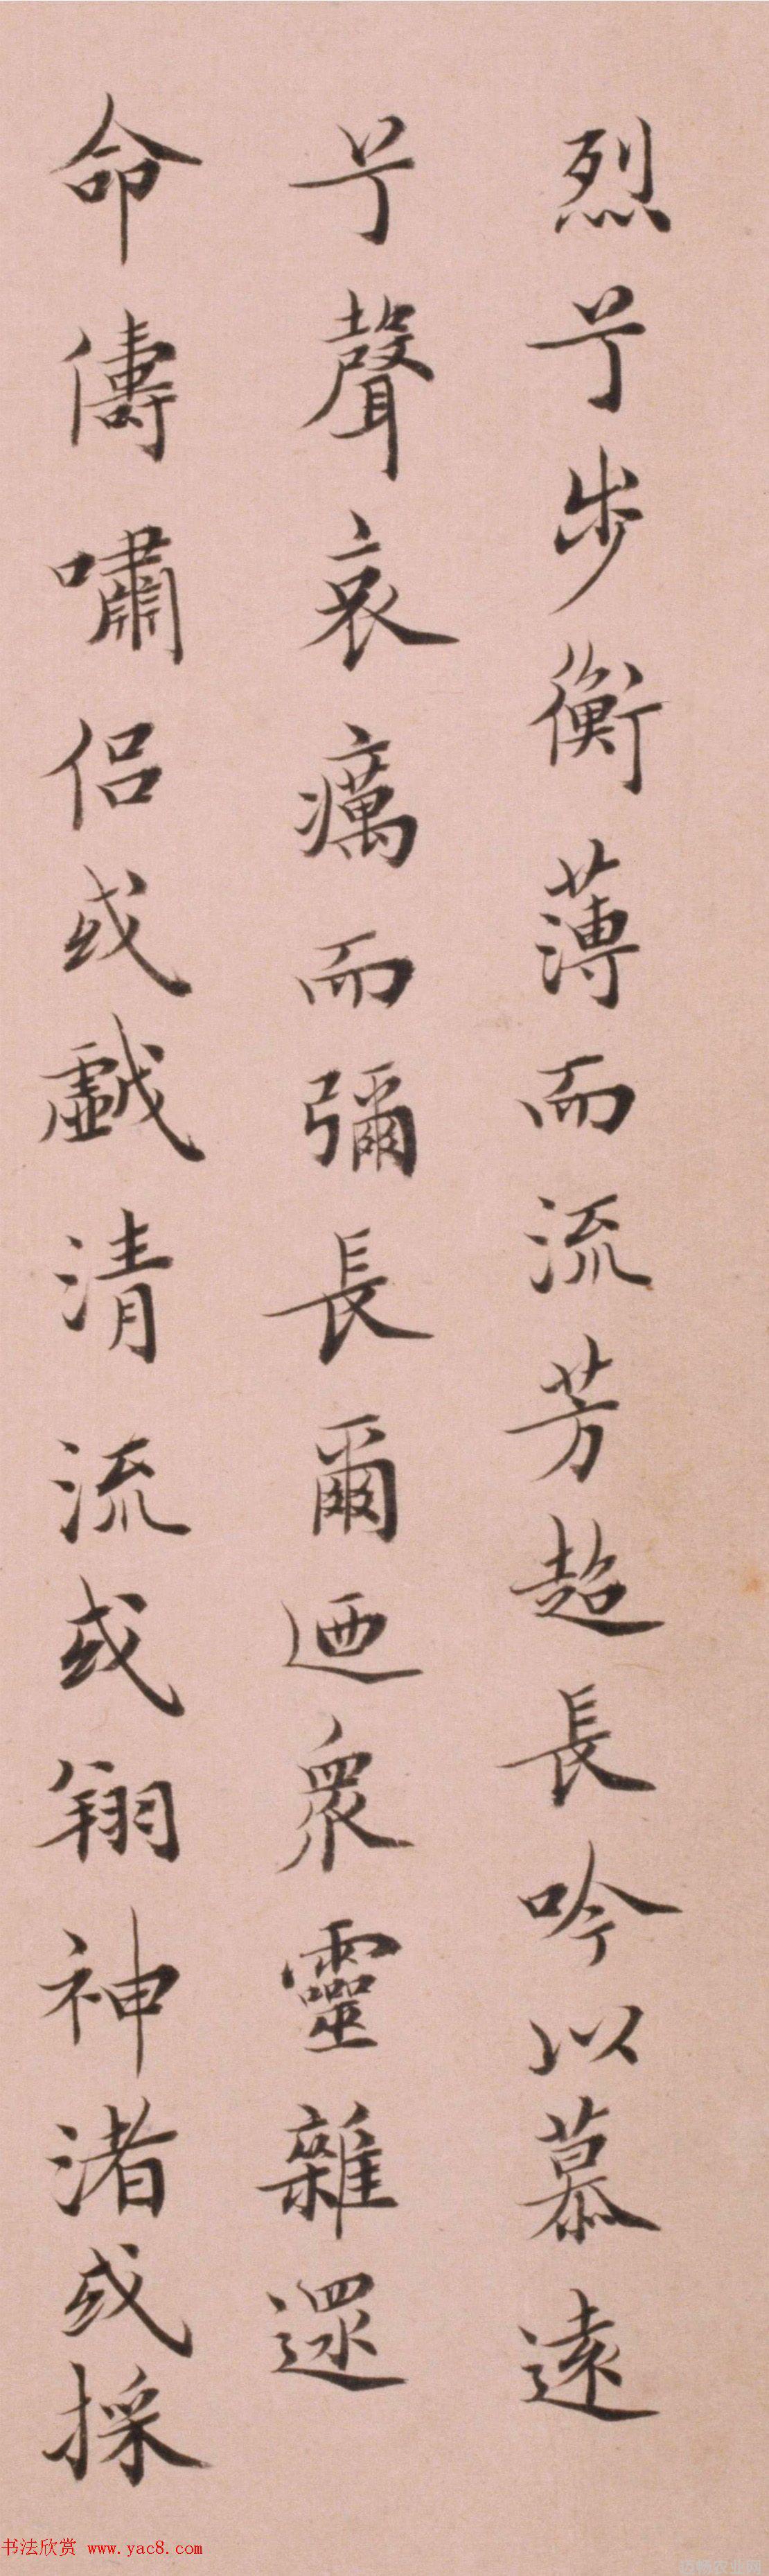 烈兮步衡薄而流芳超長吟以慕遠
兮聲哀癘而彌長爾迺衆靈雜遝
命儔嘯侶或戲清流或翔神渚或採
书法欣赏 www.yac8.com